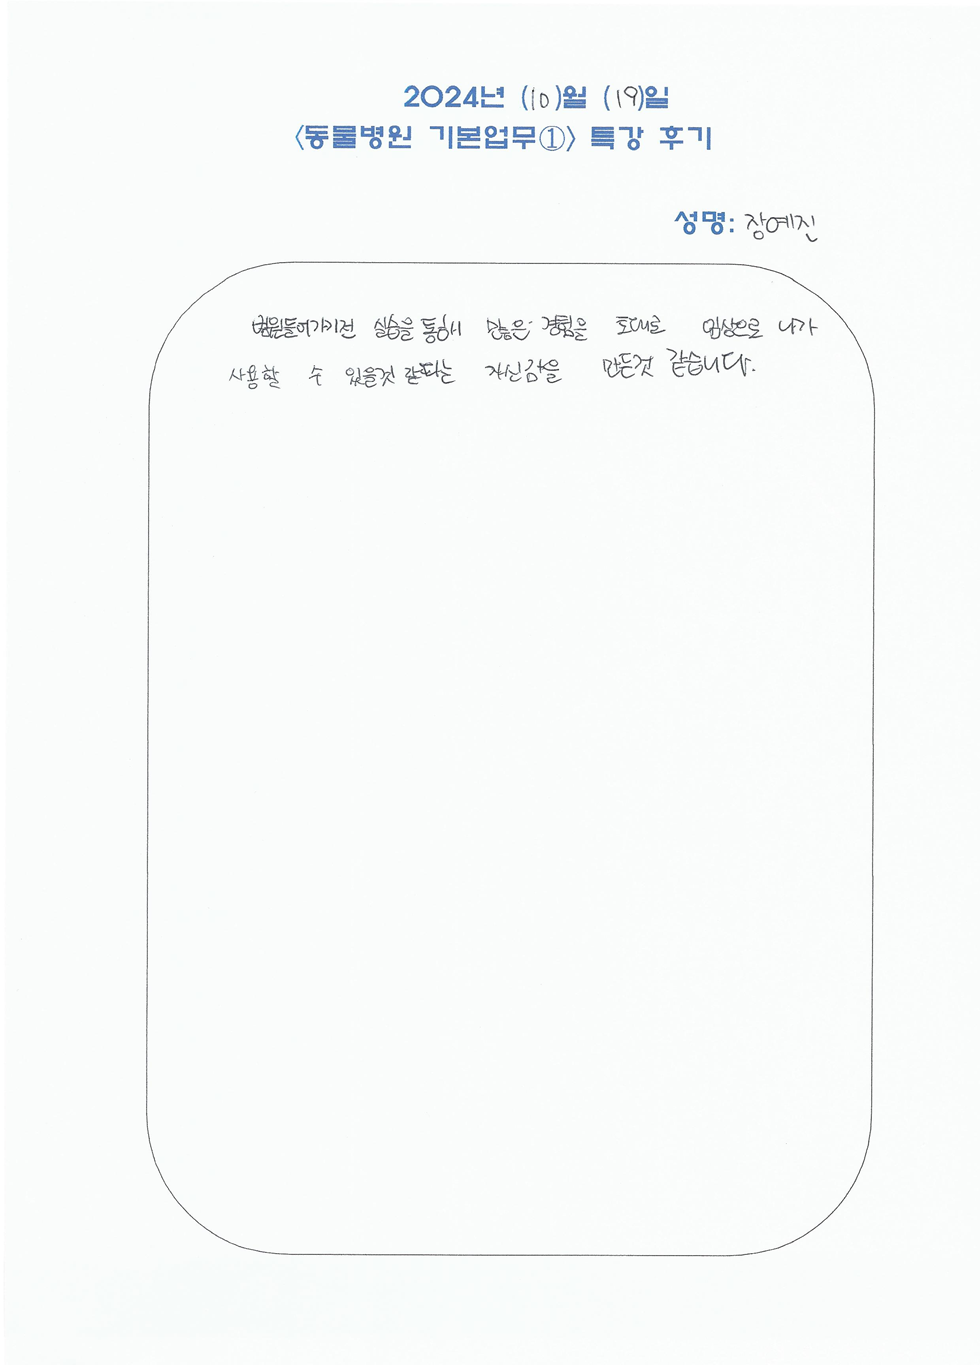 2024년 (10)월 (19)일
<동물병원 기본업무①> 특강 후기
성명: 장예진
병원들어가기전 실습을 통해서 많은 경험을 토대로 임상으로 나가
사용할 수 있을것 같다는 자신감을 만든것 같습니다.